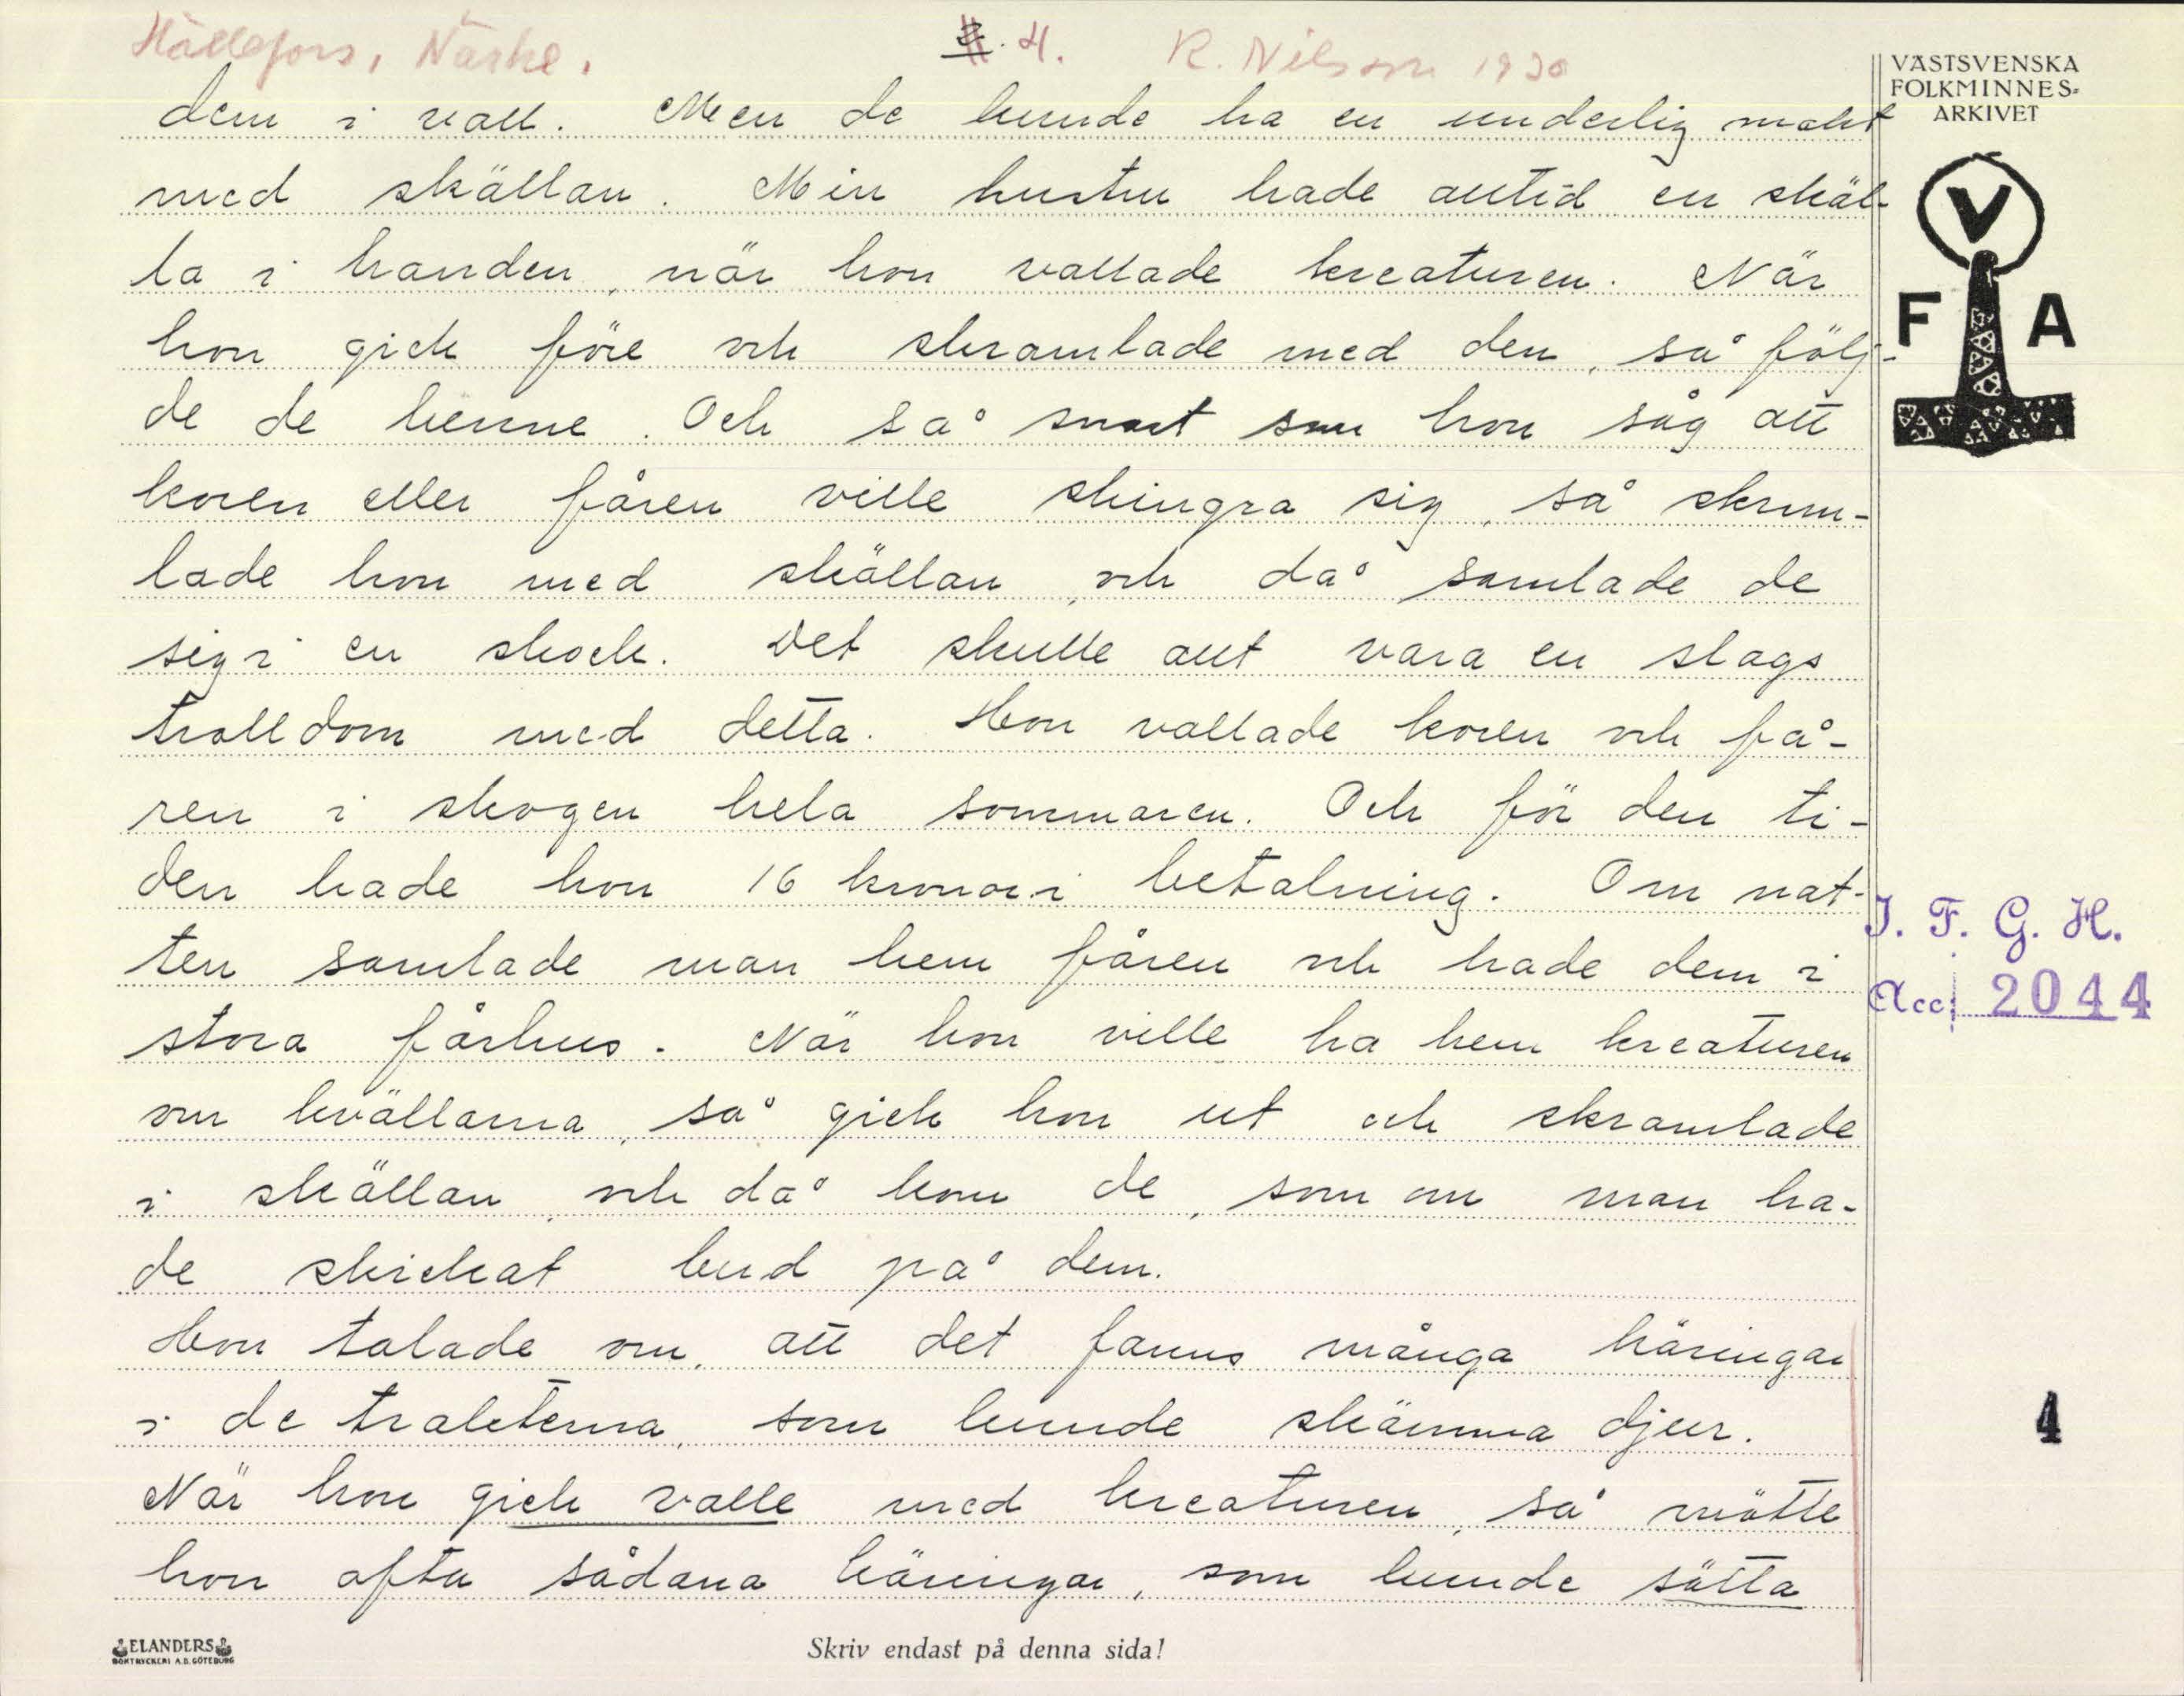 Hällefors, Närke. 4. R. Nilsson 1930
VÄSTSVENSKA
FOLKMINNES-
ARKIVET
V
F A
dem i vall. Men de kunde ha en underlig makt
med skällan. Min hustru hade alltid en skäl-
la i handen, när hon vallade kreaturen. När
hon gick före och skramlade med den, så följ-
de de henne. Och så snart som hon såg att
koren eller fåren ville skingra sig, så skram-
lade hon med skällan, och då samlade de
sig i en skock. Det skulle allt vara en slags
trolldom med detta. Hon vallade koren och få-
ren i skogen hela sommaren. Och för den ti-
den hade hon 16 kronor i betalning. Om nat-
ten samlade man hem fåren och hade dem i
stora fårhus. När hon ville ha hem kreaturen
om kvällarna, så gick hon ut och skramlade
i skällan, och då kom de, som om man ha-
de skickat bud på dem.
Hon talade om, att det fanns många käringar
i de trakterna, som kunde skämma djur.
När hon gick valle med kreaturen, så mötte
hon ofta sådana käringar, som kunde sätta
I. F. G. H.
Acc. 2044
4
ELANDERS
BOKTRYCKERI A.B. GÖTEBORG
Skriv endast på denna sida!